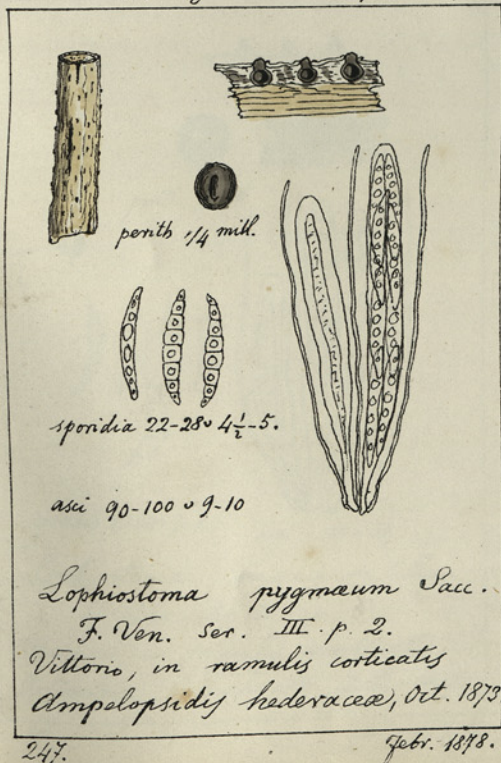 perith 1/4 mill.
sporidia 22-28 ᴗ 4½-5.
asci 90-100 ᴗ 9-10
Lophiostoma pygmæum Sacc.
F. Ven. Ser. III. p. 2.
Vittorio, in ramulis corticatis
Ampelopsidis hederaceæ, Oct. 1873
247. Febr. 1878.